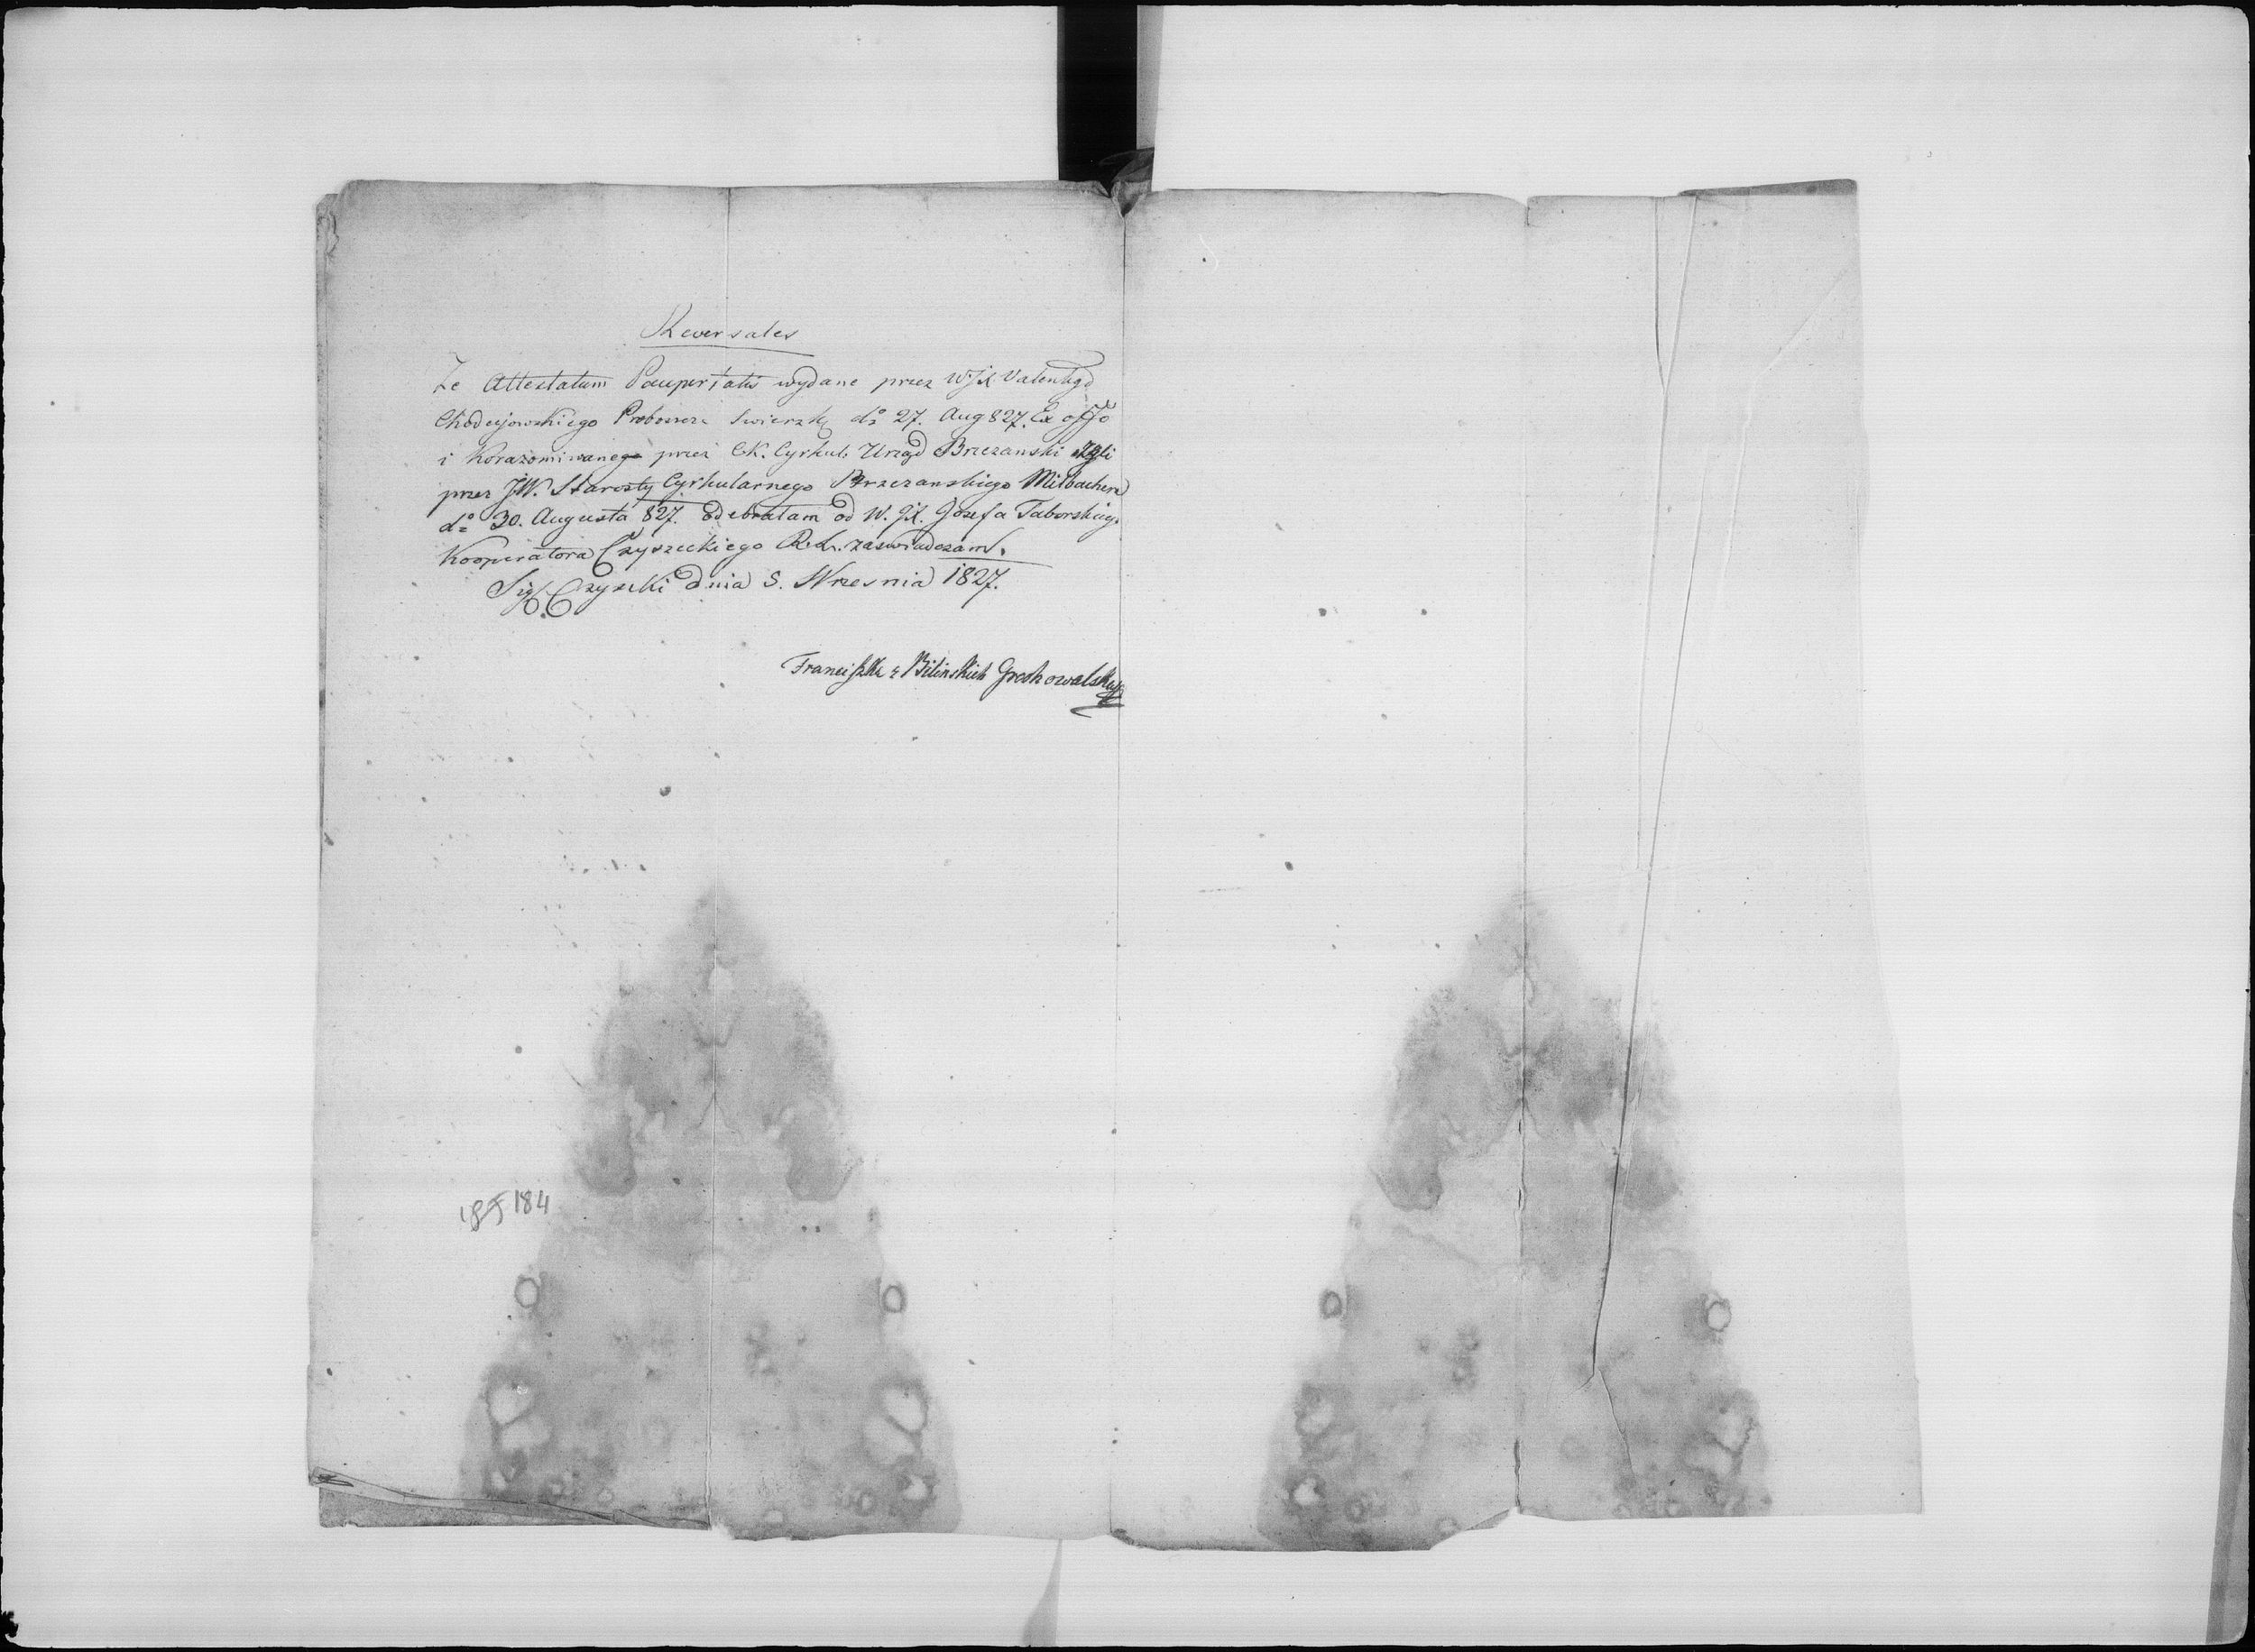 Reversales
Ze Attestatum Paupertatis wydane przez WJX Valentego
Chodejowskiego Proboszcza Swierzk dº 27. Aug 827. Ex offo
i Korazomiwanego przez C.K. Cyrkul. Urząd Brzezanski
przez J.W. Starosty Cyrkularnego Brzezanskiego Milbachera
dº 30. Augusta 827. odebrałam od W. JX. Jozefa Taborskiego
Kooperatora Czyszeckiego R. L. zaswiadczam.
Sig. Czyszki dnia 5. Wrzesnia 1827.
Franciszka z Bilinskich Grochowalska
184